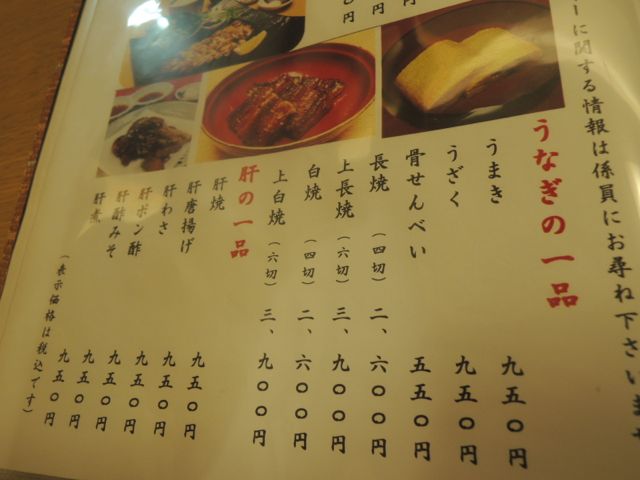 ーに関する情報は係員にお尋ね下さいませ
うなぎの一品
うまき 九五〇円
うざく 九五〇円
骨せんべい 五五〇円
長焼（四切） 二、六〇〇円
上長焼（六切） 三、九〇〇円
白焼（四切） 二、六〇〇円
上白焼（六切） 三、九〇〇円
肝の一品
肝焼 九五〇円
肝唐揚げ 九五〇円
肝わさ 九五〇円
肝ポン酢 九五〇円
肝酢みそ 九五〇円
肝煮 九五〇円
（表示価格は税込です）
〇円
〇円
円